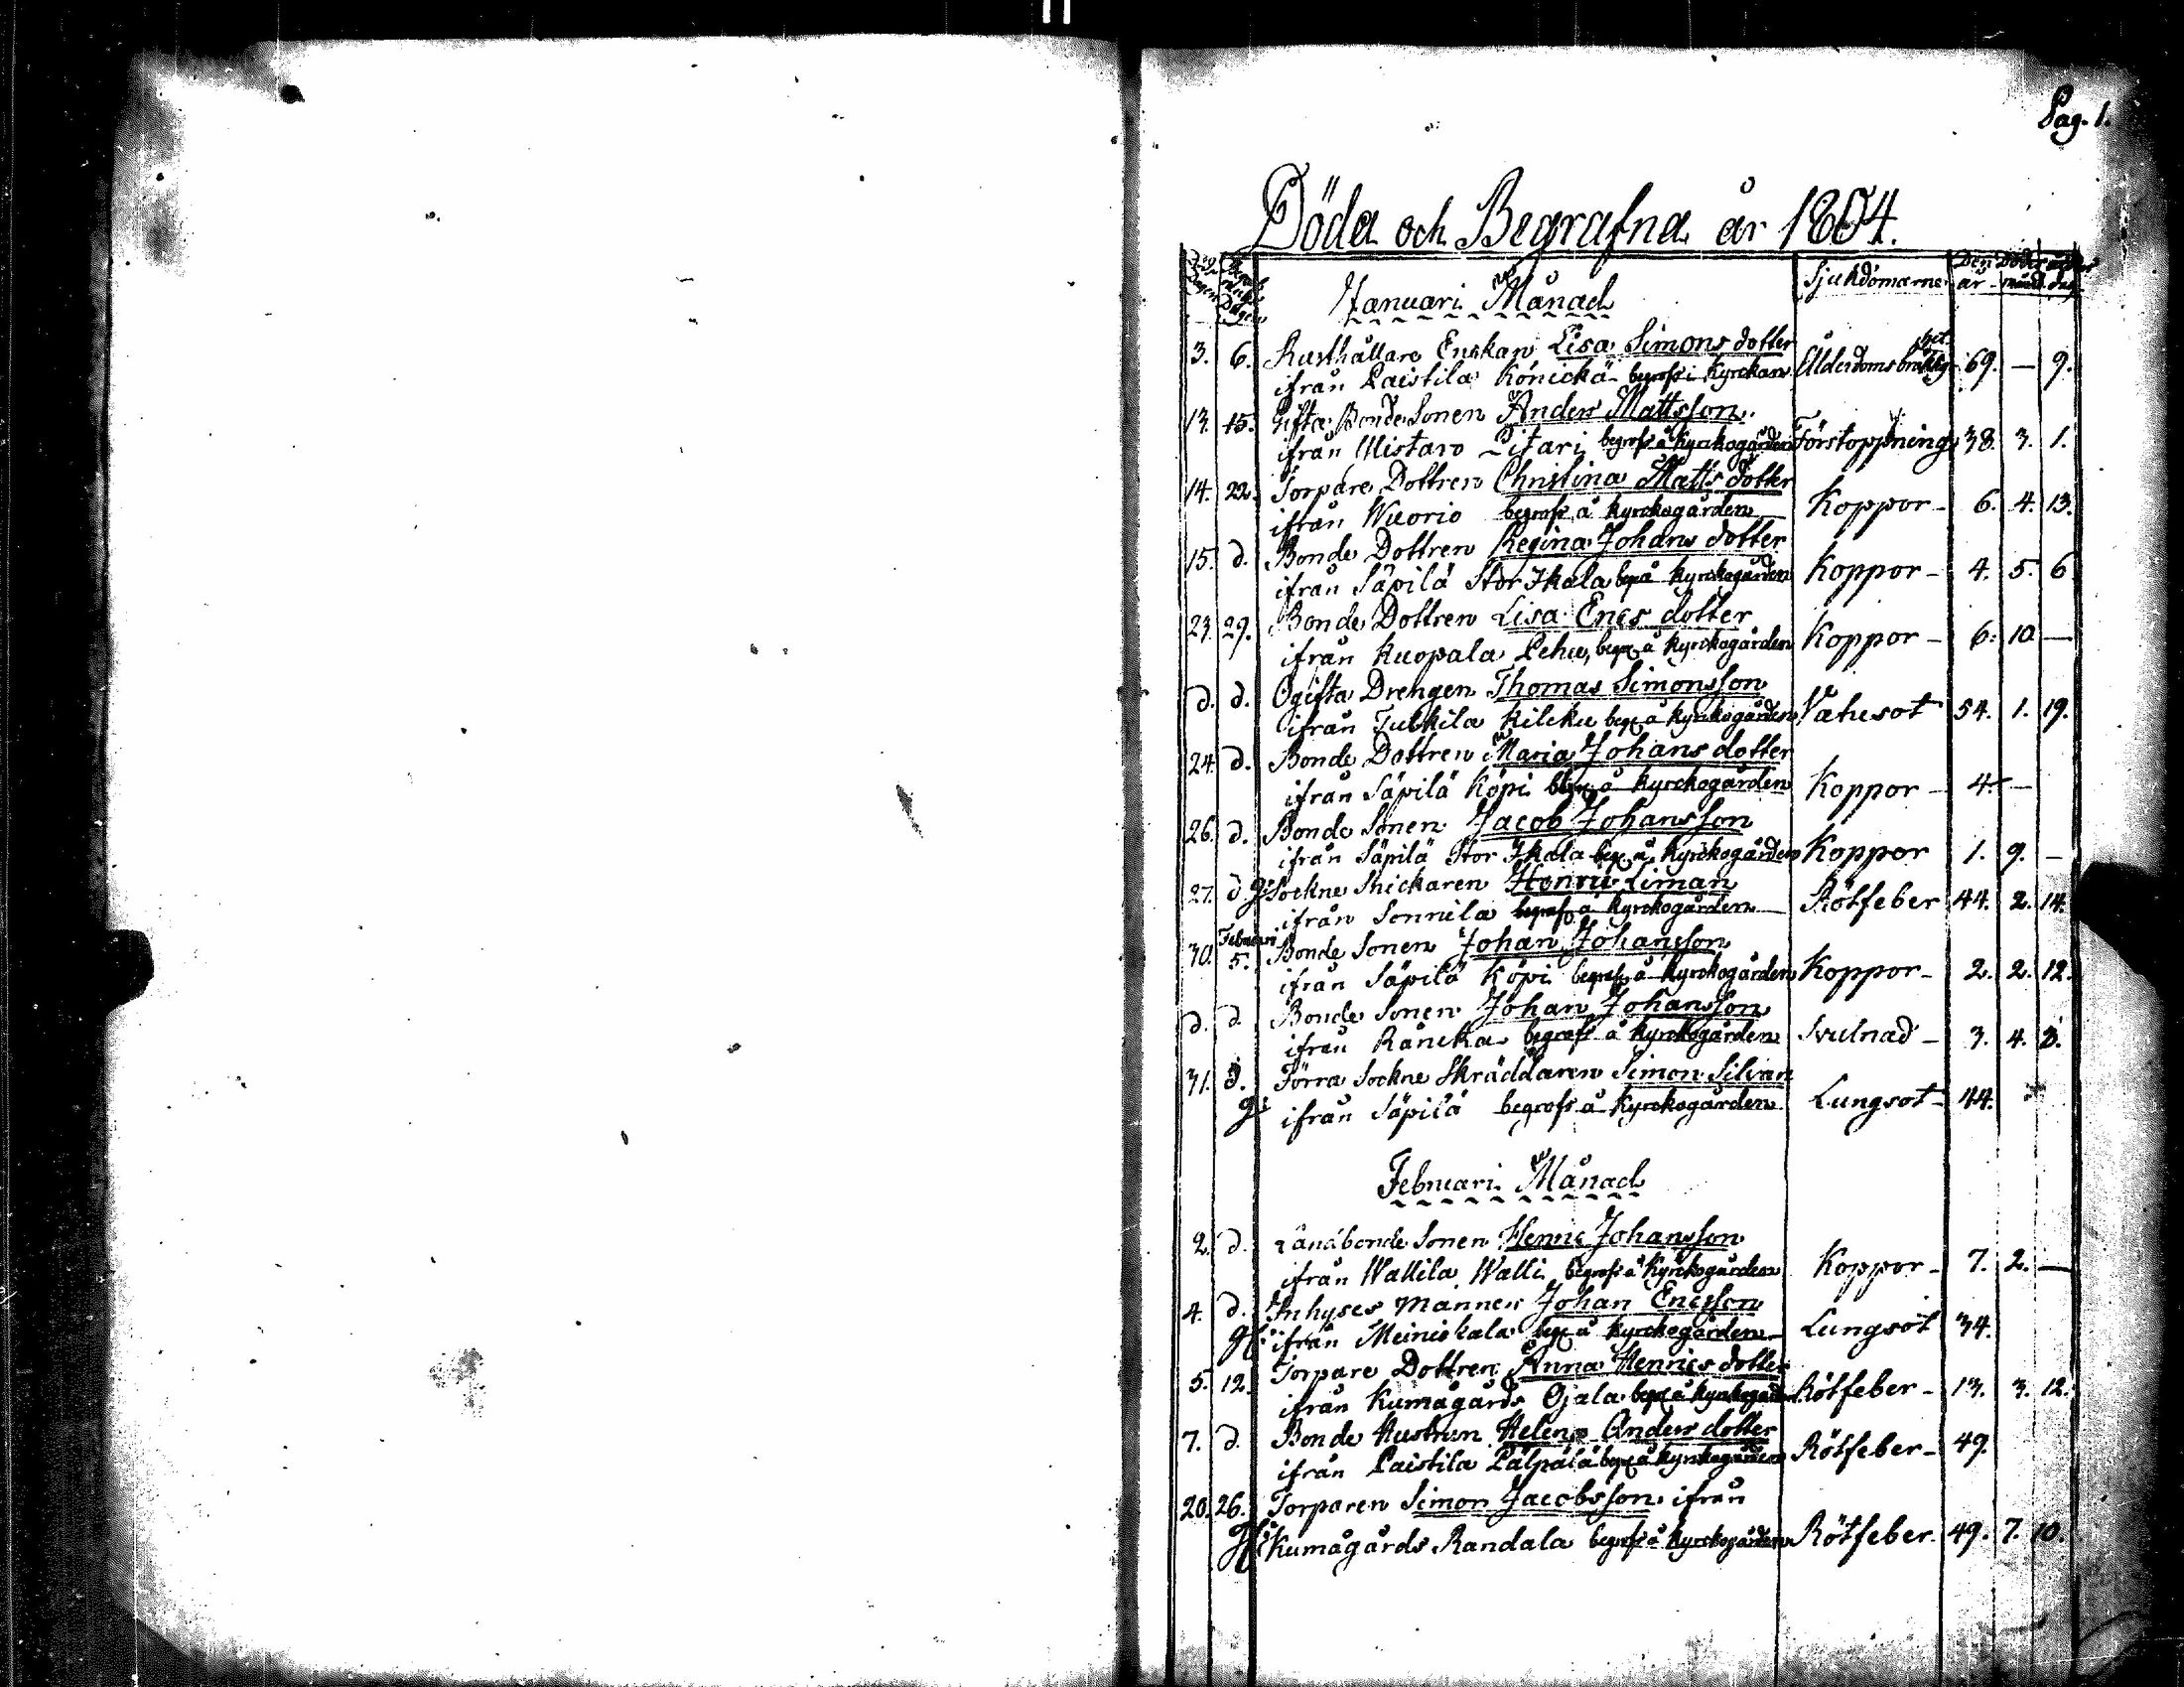 Pag. 1.
Döda och Begrafna år 1804.
Dagen
Januari Månad
Sjukdomarne
Den Dödes ålder
år
månd.
dag.
3. 6. Rusthållare Enckan Lisa Simons dotter
ifrån Paistila Könickä begrofs i Kyrckan Ålderdoms bräklighet 69. — 9.
13. 15. Gifta Bonde Sonen Anders Mattsson
ifrån Mistaro Pitari begrofs å Kyrckogården Förstoppning 38. 3. 1.
14. 22. Torpare Dottren Christina Matts dotter
ifrån Wuorio begrofs å Kyrckogården Koppor - 6. 4. 13.
15. d. Bonde Dottren Regina Johans dotter
ifrån Säpilä Stor Ikala begr. å Kyrckogården Koppor - 4. 5. 6.
23. 29. Bonde Dottren Lisa Erics dotter
ifrån Kuopala Lehu, begr. å Kyrckogården Koppor - 6. 10 —
d. d. Ogifta Drengen Thomas Simonsson
ifrån Tulkila Kilcku begr. å Kyrckogården Vatusot 54. 1. 19.
24. d. Bonde Dottren Maria Johans dotter
ifrån Säpilä Köpi begr. å Kyrckogården Koppor - 4. —
26. d. Bonde Sonen Jacob Johansson
ifrån Säpilä Stor Ikala begr. å Kyrckogården Koppor 1. 9. —
27. d. g. Sockne Snickaren Henric Liman
ifrån Sonnila begrofs å Kyrckogården Rötfeber 44. 2. 14.
30. Februari 5. Bonde Sonen Johan Johansson
ifrån Säpilä Köpi begrofs å Kyrckogården Koppor - 2. 2. 12.
d. d. Bonde Sonen Johan Johansson
ifrån Råncka begrofs å Kyrckogården Svulnad - 3. 4. 3.
31. d. Förra Sockne Skräddaren Simon Silvan
g. ifrån Säpilä begrofs å Kyrckogården Lungsot - 44.
Februari Månad
2. d. Lånábonde Sonen Henric Johansson
ifrån Wallila Walli begrofs å Kyrckogården Koppor - 7. 2. —
4. d. Inhyses Mannen Johan Ericsson
g. ifrån Meiniskala begr. å Kyrckogården Lungsot 34.
5. 12. Torpare Dottren Anna Henrics dotter
ifrån Kumågårds Ojala begr. å Kyrckogården Rötfeber - 13. 3. 12.
7. d. Bonde Hustrun Helena Anders dotter
ifrån Paistila Pälpälä begr. å Kyrckogården Rötfeber - 49.
20. 26. Torparen Simon Jacobsson ifrån
g. Kumågårds Randala begrofs å Kyrckogården Rötfeber 49. 7. 10.